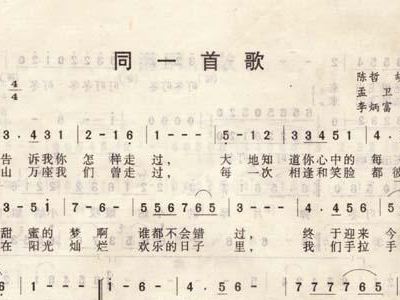 同一首歌
4/4
陈哲
孟卫
李炳富
3·431 | 2-16 | 1-- | 5-12 | 33451 | 4--
告诉我你怎样走过， 大地知道你心中的每
山万座我们曾走过， 每一次相逢和笑脸都彼
5 | 556765 | 3-- | 3·456 | 5
甜蜜的梦啊 谁都不会错过， 终于迎来今
在阳光灿烂 欢乐的日子里， 我们手拉手